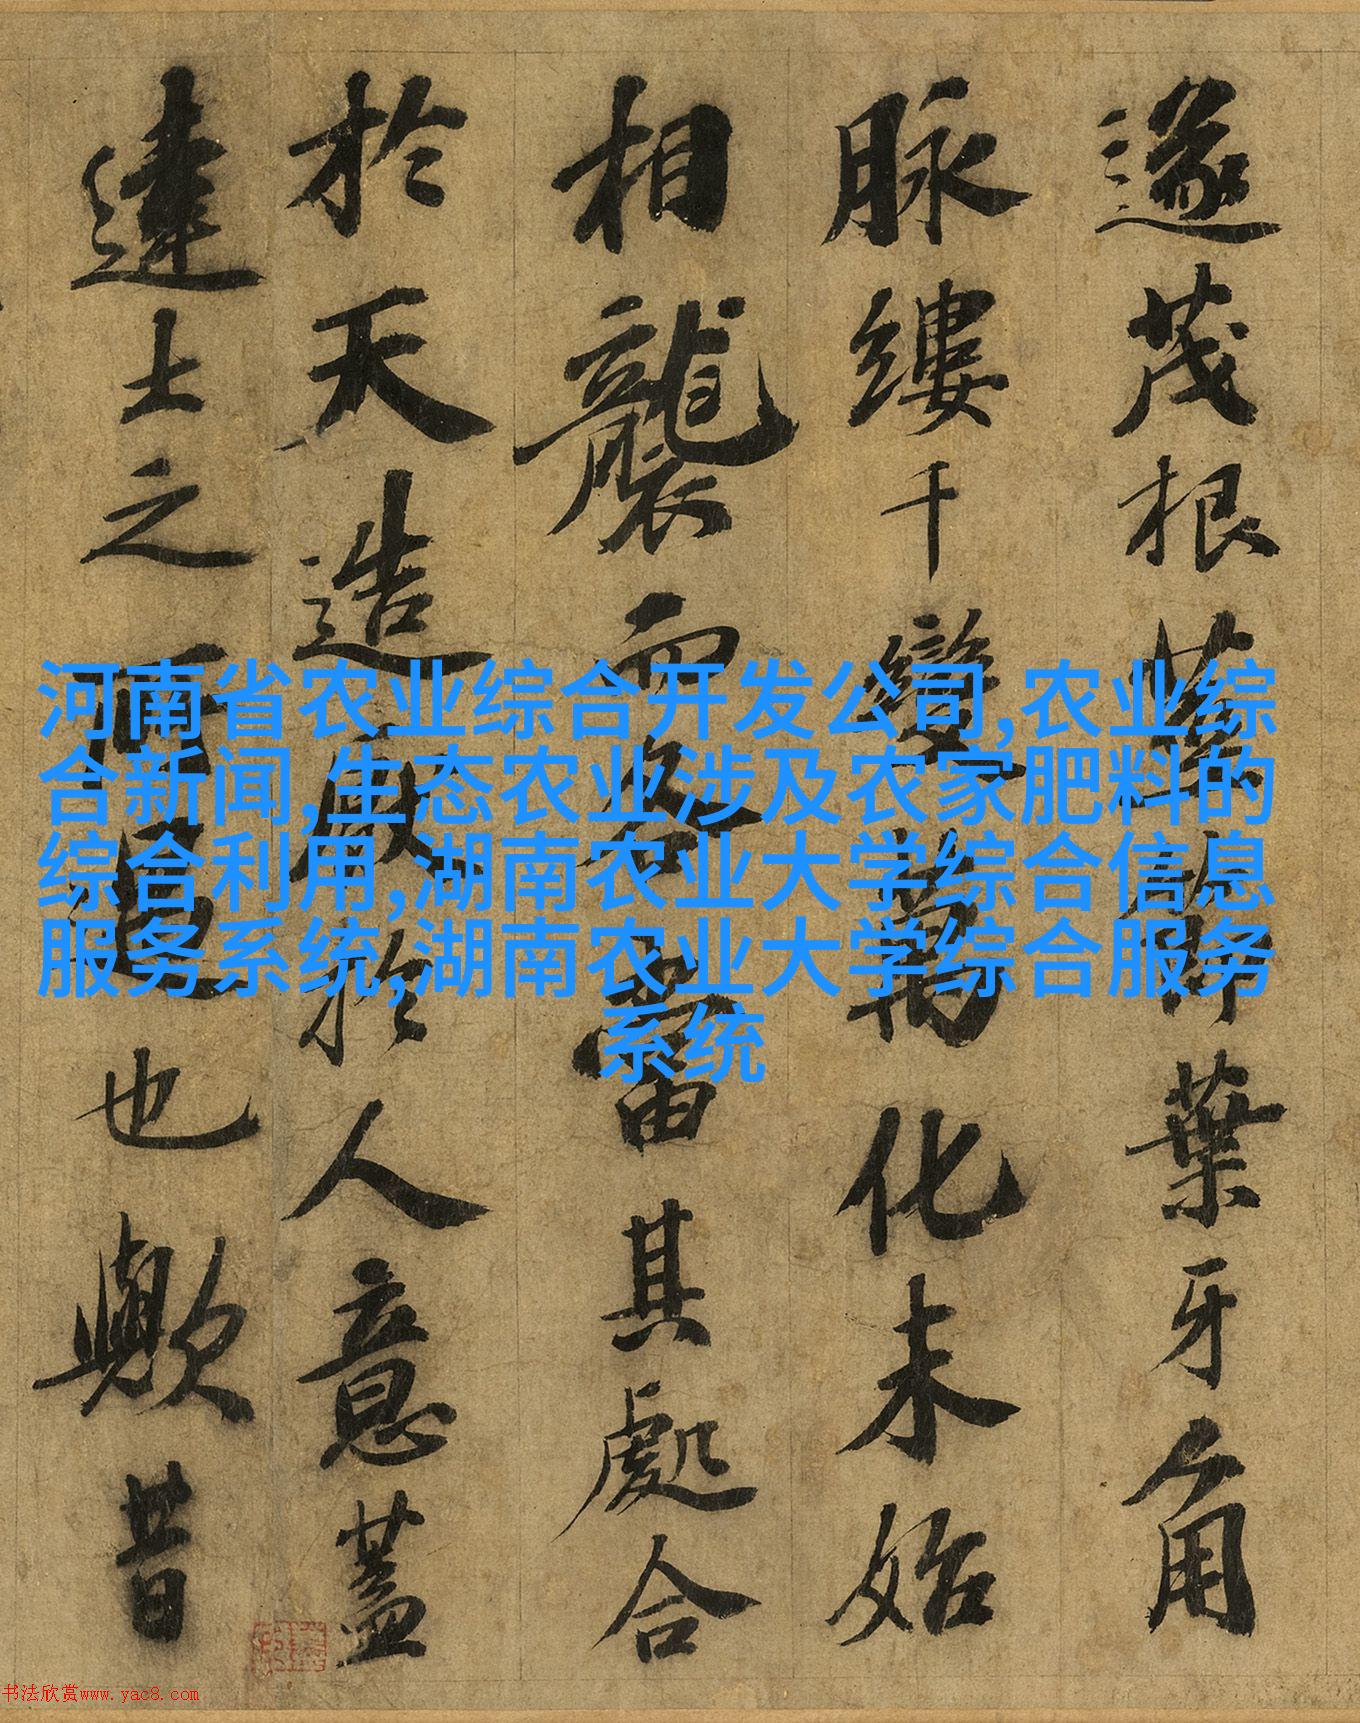 遂茂根莖節葉牙角
脉縷千變萬化未始
相襲而各當其處合
於天造猒於人意蓋
達士之所也歟昔
河南省农业综合开发公司,农业综
合新闻,生态农业涉及农家肥料的
综合利用,湖南农业大学综合信息
服务系统,湖南农业大学综合服务
系统
书法欣赏www.yac8.com